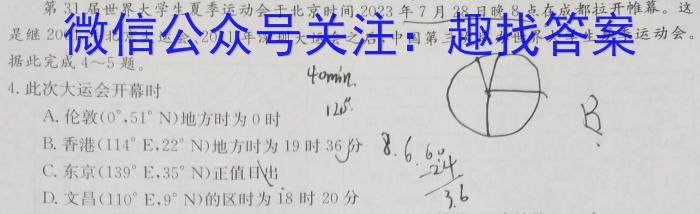 第31届世界大学生夏季运动会于北京时间2023年7月28日晚8点在成都拉开帷幕。这
是继20
年深圳大运会之后,中国第三
运动会。
微信公众号关注:趣找答案
据此完成4~5题。
40min.
4.此次大运会开幕时
120°
A.伦敦(0°,51°N)地方时为0时
B
B.香港(114°E,22°N)地方时为19时36分
8.6.
60
24
3.6
C.东京(139°E,35°N)正值日出
D.文昌(110°E,9°N)的区时为18时20分